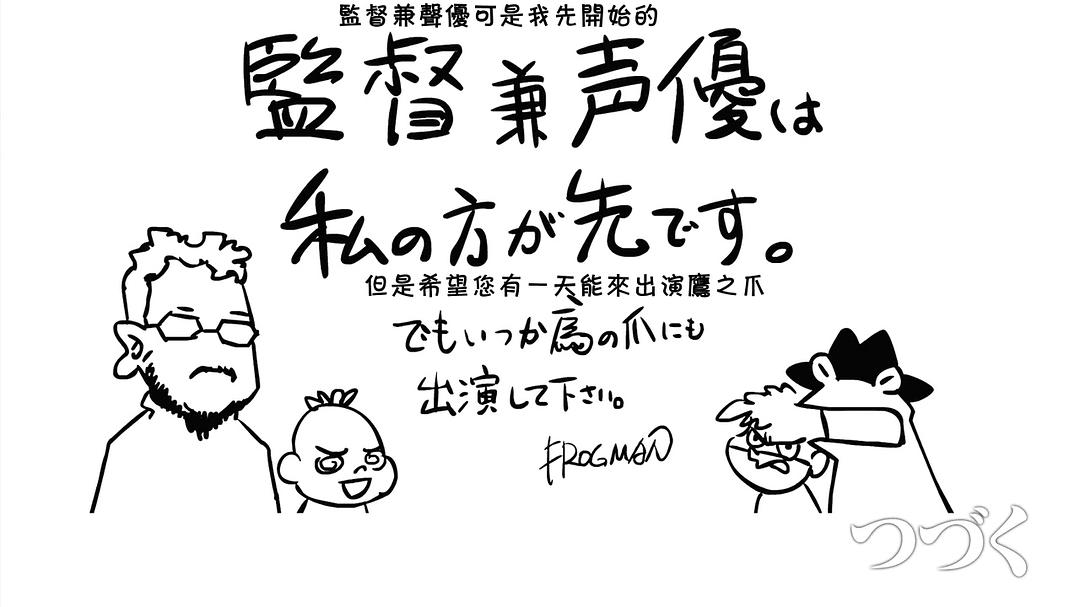 監督兼聲優可是我先開始的
監督兼声優は
私の方が先です。
但是希望您有一天能來出演鷹之爪
でもいつか鷹の爪にも
出演して下さい。
FROGMAN
つづく